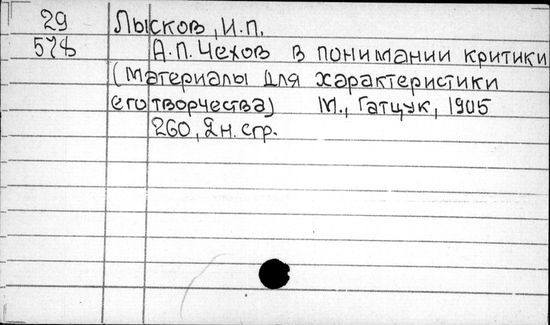 29 Лысков, И.П.
578 А.П. Чехов в понимании критики
(материалы для характеристики
его творчества) М., Гатцук, 1905
260, 2 н. стр.